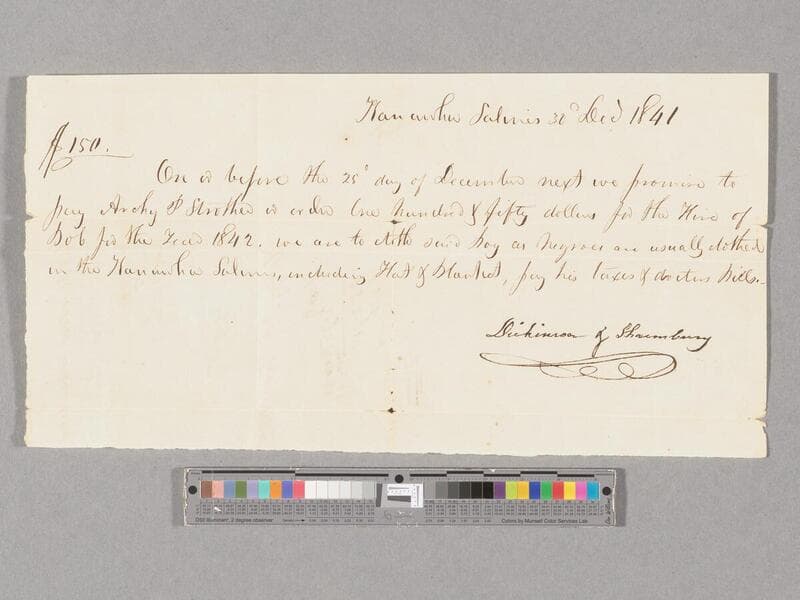 Kanawha Salines 30d Decd 1841
$150.
On or before the 25d day of December next we promise to
pay Archy P Strother or order One hundred & fifty dollars for the Hire of
Bob for the Year 1842. we are to cloth said boy as Negroes are usually clothed
in the Kanawha Salines, including Hat & Blanket, pay his taxes & doctors Bills.
Dickinson & Shrewsbury
D50 Illuminant, 2 degree observer
Colors by Munsell Color Services Lab